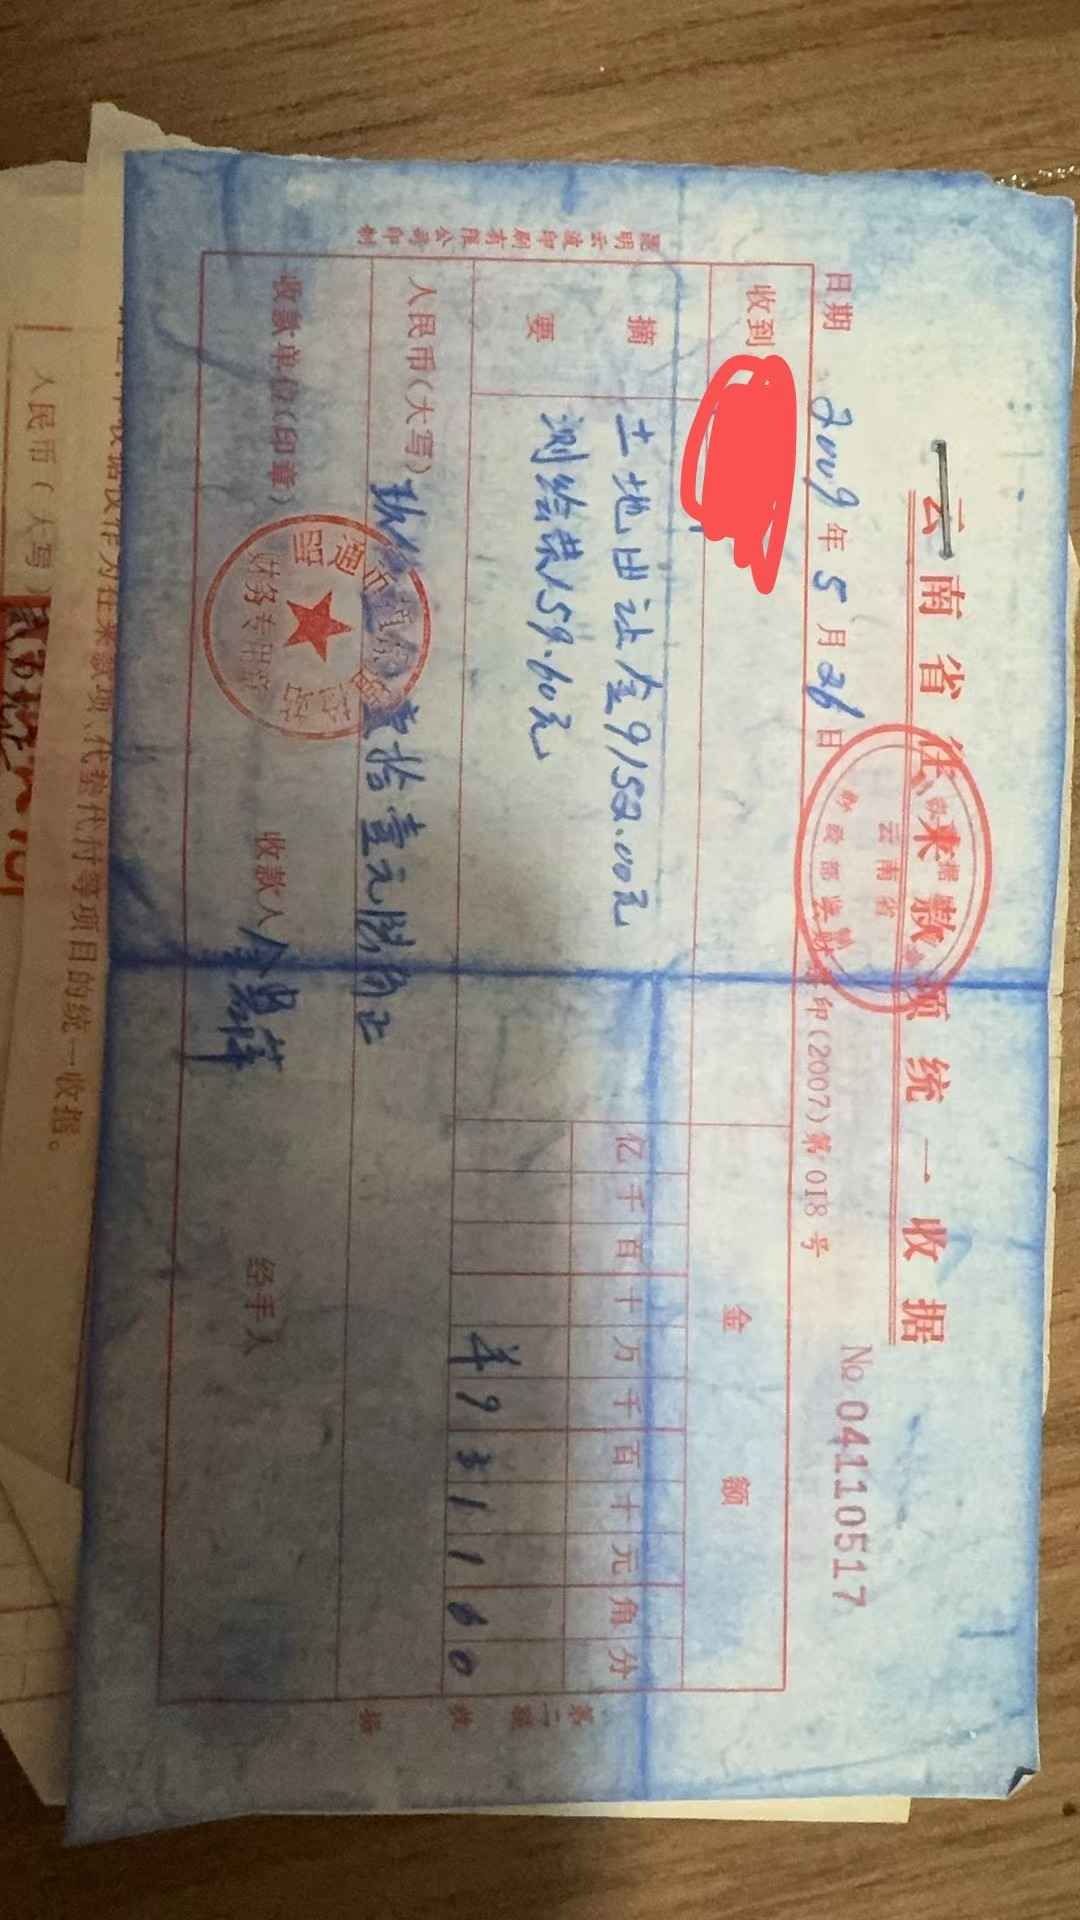 云南省往来款项统一收据
云南省
财政部监制
日期 2009年5月26日
财综印(2007)第018号
No 04110517
收到
金额
摘要
土地出让金9152.00元
测绘费159.60元
亿千百十万千百十元角分
羊931160
人民币(大写)
玖仟 壹拾壹元陆角正
收款单位(印章)
财务专用章
收款人
经手人
昆明云波印刷有限公司印制
第二联 收据
人民币(大写)
代垫代付等项目的统一收据。